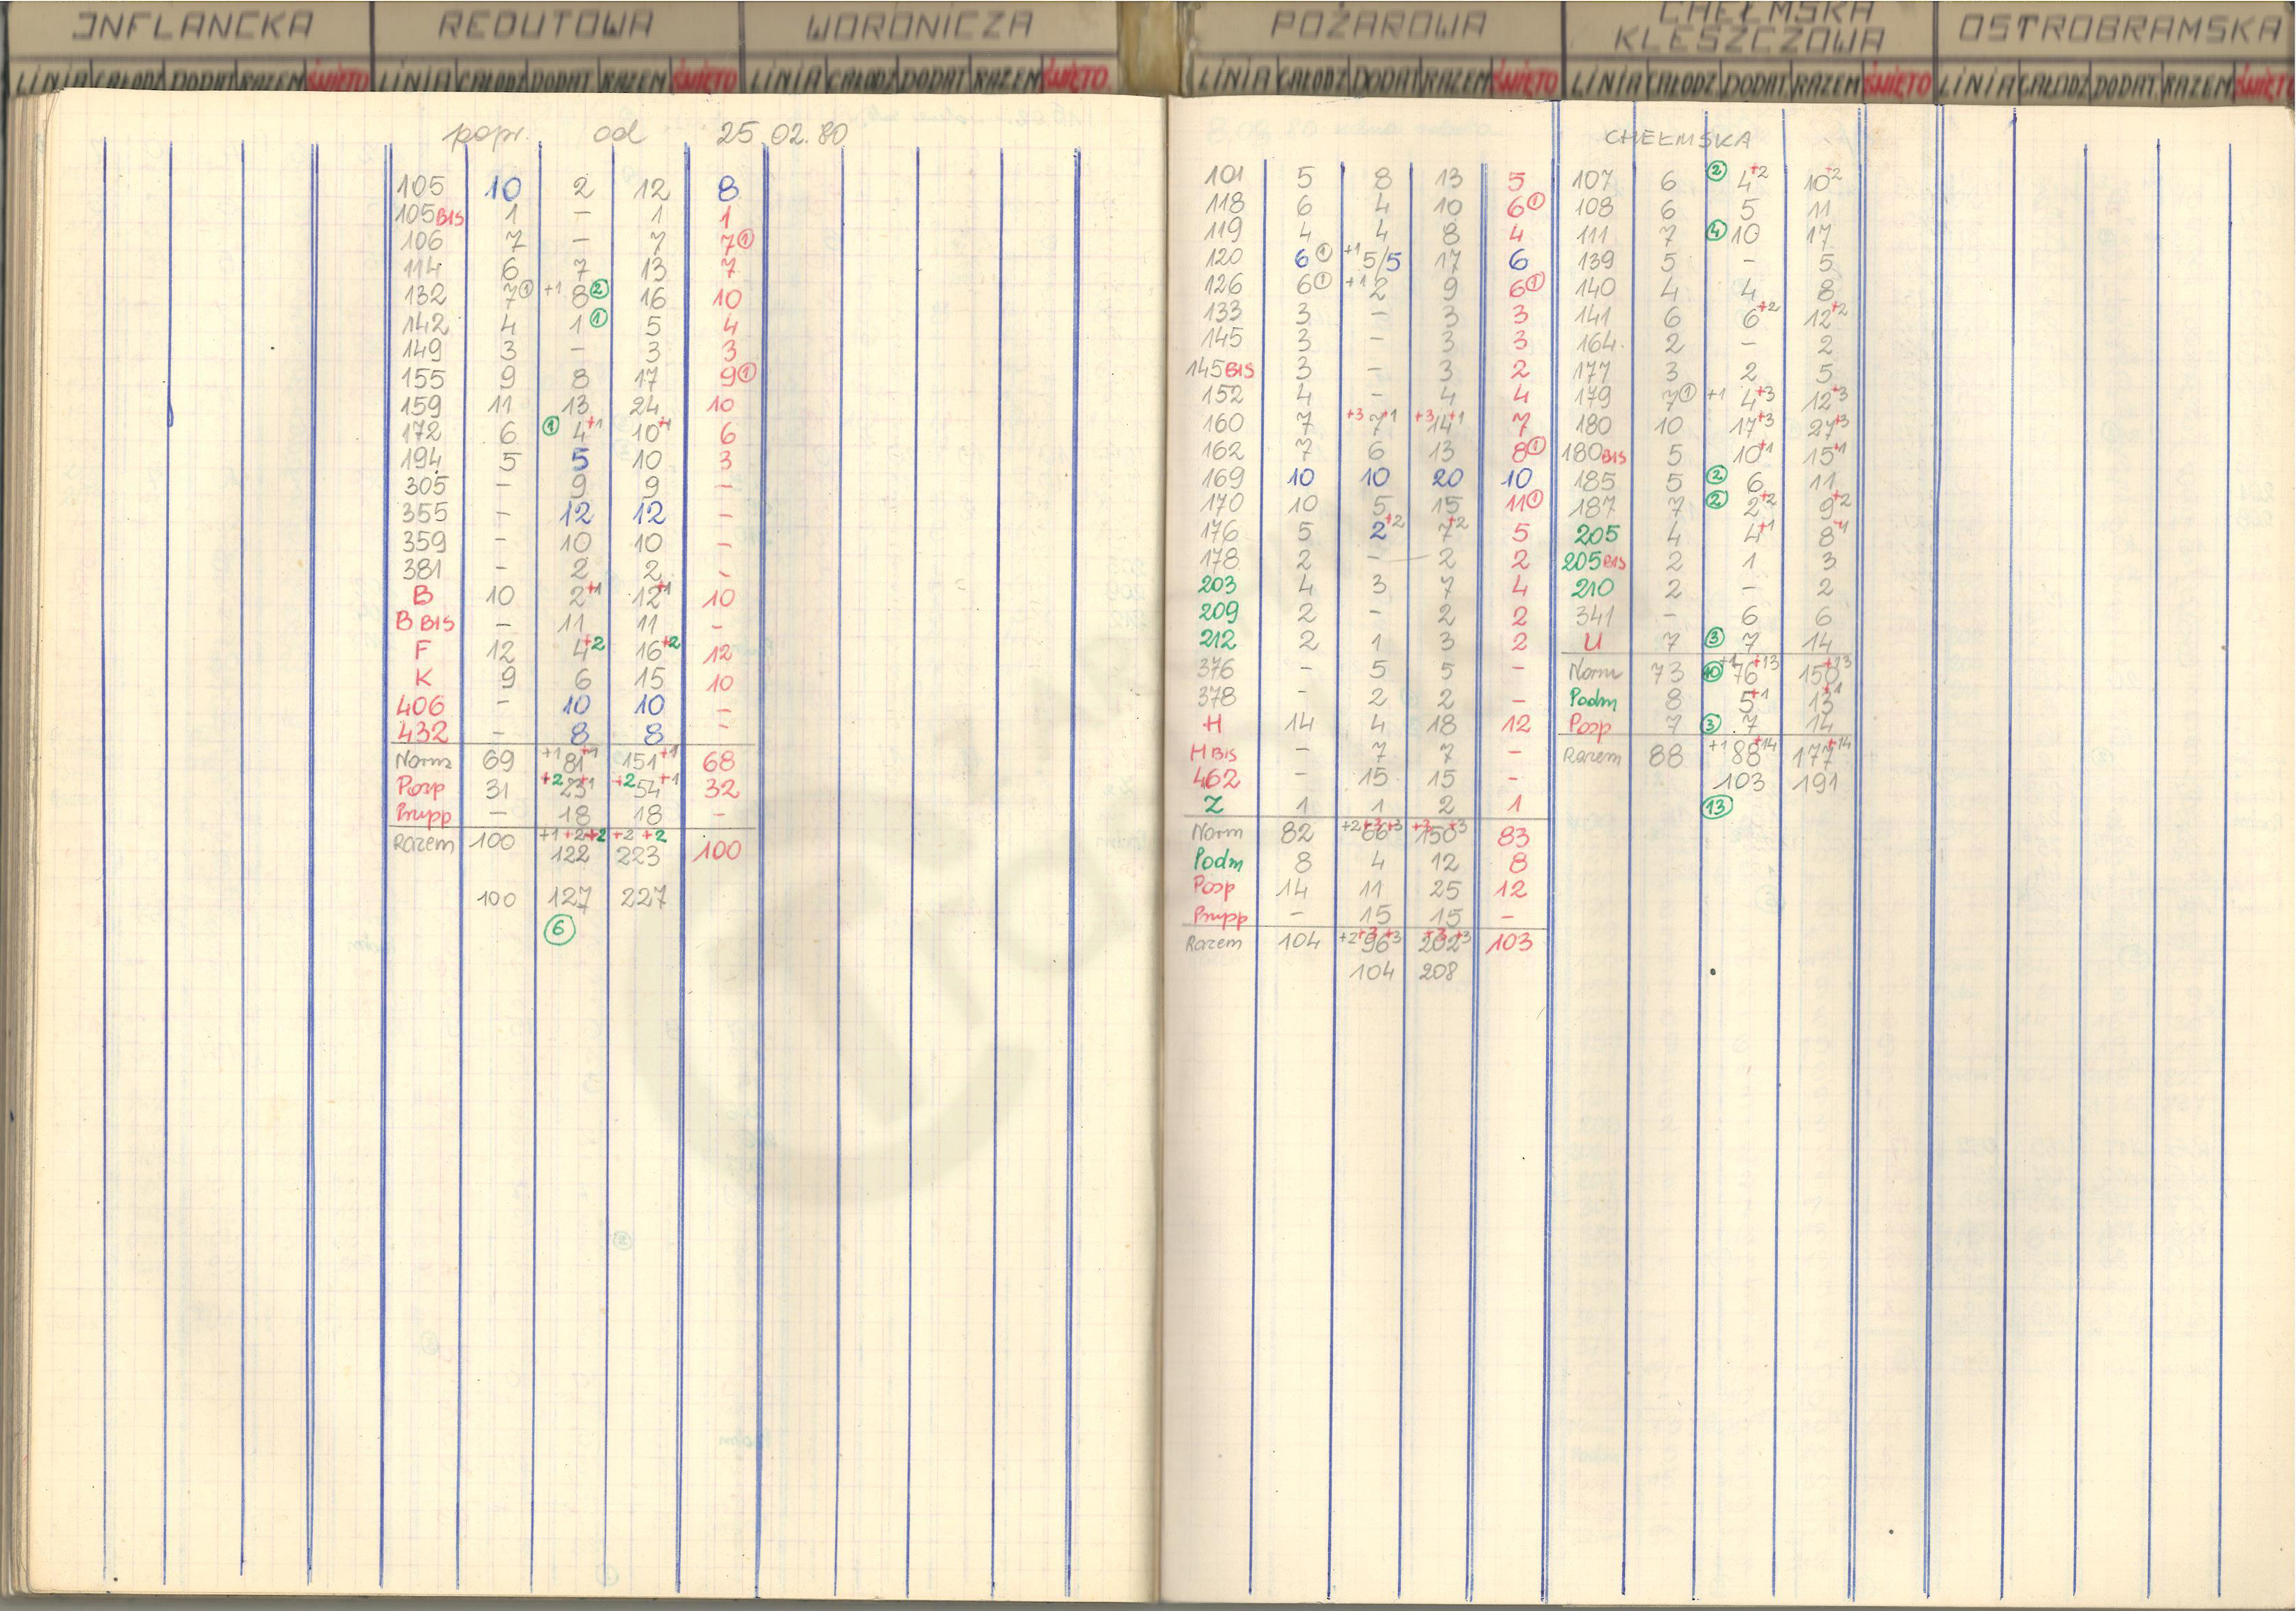 INFLANCKA REDUTOWA WORONICZA POŻAROWA CHEŁMSKA KLESZCZOWA OSTROBRAMSKA
LINIA CAŁODZ DODAT RAZEM ŚWIĘTO LINIA CAŁODZ DODAT RAZEM ŚWIĘTO LINIA CAŁODZ DODAT RAZEM ŚWIĘTO LINIA CAŁODZ DODAT RAZEM ŚWIĘTO LINIA CAŁODZ DODAT RAZEM ŚWIĘTO LINIA CAŁODZ DODAT RAZEM ŚWIĘTO
popr. od 25.02.80
105 10 2 12 8
105 BIS 1 – 1 1
106 7 – 7 7 ①
114 6 7 13 7
132 7 ① +1 8 ② 16 10
142 4 1 ① 5 4
149 3 – 3 3
155 9 8 17 9 ①
159 11 13 24 10
172 6 ① 4+1 10+1 6
194 5 5 10 3
305 – 9 9 –
355 – 12 12 –
359 – 10 10 –
381 – 2 2 –
B 10 2+1 12+1 10
B BIS – 11 11 –
F 12 4+2 16+2 12
K 9 6 15 10
406 – 10 10 –
432 – 8 8 –
Norm 69 +1 81+1 151+1 68
Posp 31 +2 23+1 +2 54+1 32
Pnpp – 18 18 –
Razem 100 +1 +2 +2 122 +2 +2 223 100
100 127 227
⑥
101 5 8 13 5
118 6 4 10 6 ①
119 4 4 8 4
120 6 ① +1 5/5 17 6
126 6 ① +1 2 9 6 ①
133 3 – 3 3
145 3 – 3 3
145 BIS 3 – 3 2
152 4 – 4 4
160 7 +3 7+1 +3 14+1 7
162 7 6 13 8 ①
169 10 10 20 10
170 10 5 15 11 ①
176 5 2+2 7+2 5
178 2 – 2 2
203 4 3 7 4
209 2 – 2 2
212 2 1 3 2
376 – 5 5 –
378 – 2 2 –
H 14 4 18 12
H BIS – 7 7 –
462 – 15 15 –
Z 1 1 2 1
Norm 82 +2 +3 66+3 +3 150+3 83
Podm 8 4 12 8
Posp 14 11 25 12
Pnpp – 15 15 –
Razem 104 +2 +3 96+3 +3 202+3 103
104 208
CHEŁMSKA
107 6 ② 4+2 10+2
108 6 5 11
111 7 ④ 10 17
139 5 – 5
140 4 4 8
141 6 6+2 12+2
164 2 – 2
177 3 2 5
179 7 ① +1 4+3 12+3
180 10 17+3 27+3
180 BIS 5 10+1 15+1
185 5 ② 6 11
187 7 ② 2+2 9+2
205 4 4+1 8+1
205 BIS 2 1 3
210 2 – 2
341 – 6 6
U 7 ③ 7 14
Norm 73 ⑩ +1 76+13 150+13
Podm 8 5+1 13+1
Posp 7 ③ 7 14
Razem 88 +1 88+14 177+14
103 191
⑬